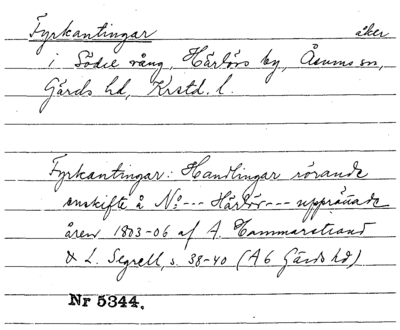 Fyrkantingar åker
i Södre vång, Härlövs by, Åsums sn,
Gärds hd, Krstd. l.
Fyrkantingar: Handlingar rörande
enskifte å No --- Härlöv --- upprättade
åren 1803-06 af A. Hammarstrand
& L. Segrell, s. 38-40 (A 6 Gärds hd)
Nr 5344.